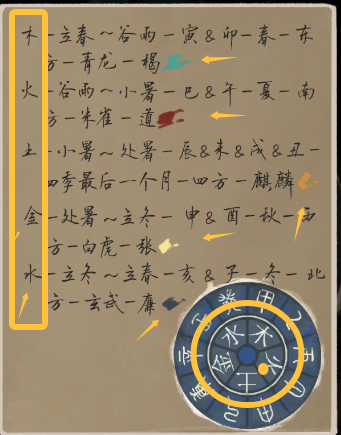 木-立春~谷雨-寅&卯-春-东
方-青龙-楊
火-谷雨~小暑-巳&午-夏-南
方-朱雀-道
土-小暑~处暑-辰&未&戌&丑-
四季最后一个月-四方-麒麟
金-处暑~立冬-申&酉-秋-西
方-白虎-张
水-立冬~立春-亥&子-冬-北
方-玄武-
癸 甲 乙 丙 辛
水 木 火 土 金